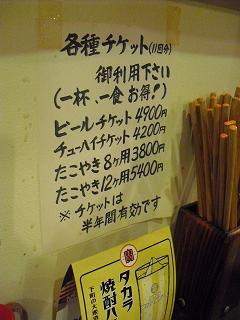 各種チケット(11回分)
御利用下さい
(一杯、一食お得!)
ビールチケット4900円
チューハイチケット4200円
たこやき8ヶ用3800円
たこやき12ヶ用5400円
※チケットは
半年間有効です
寶
タカラ
焼酎ハ